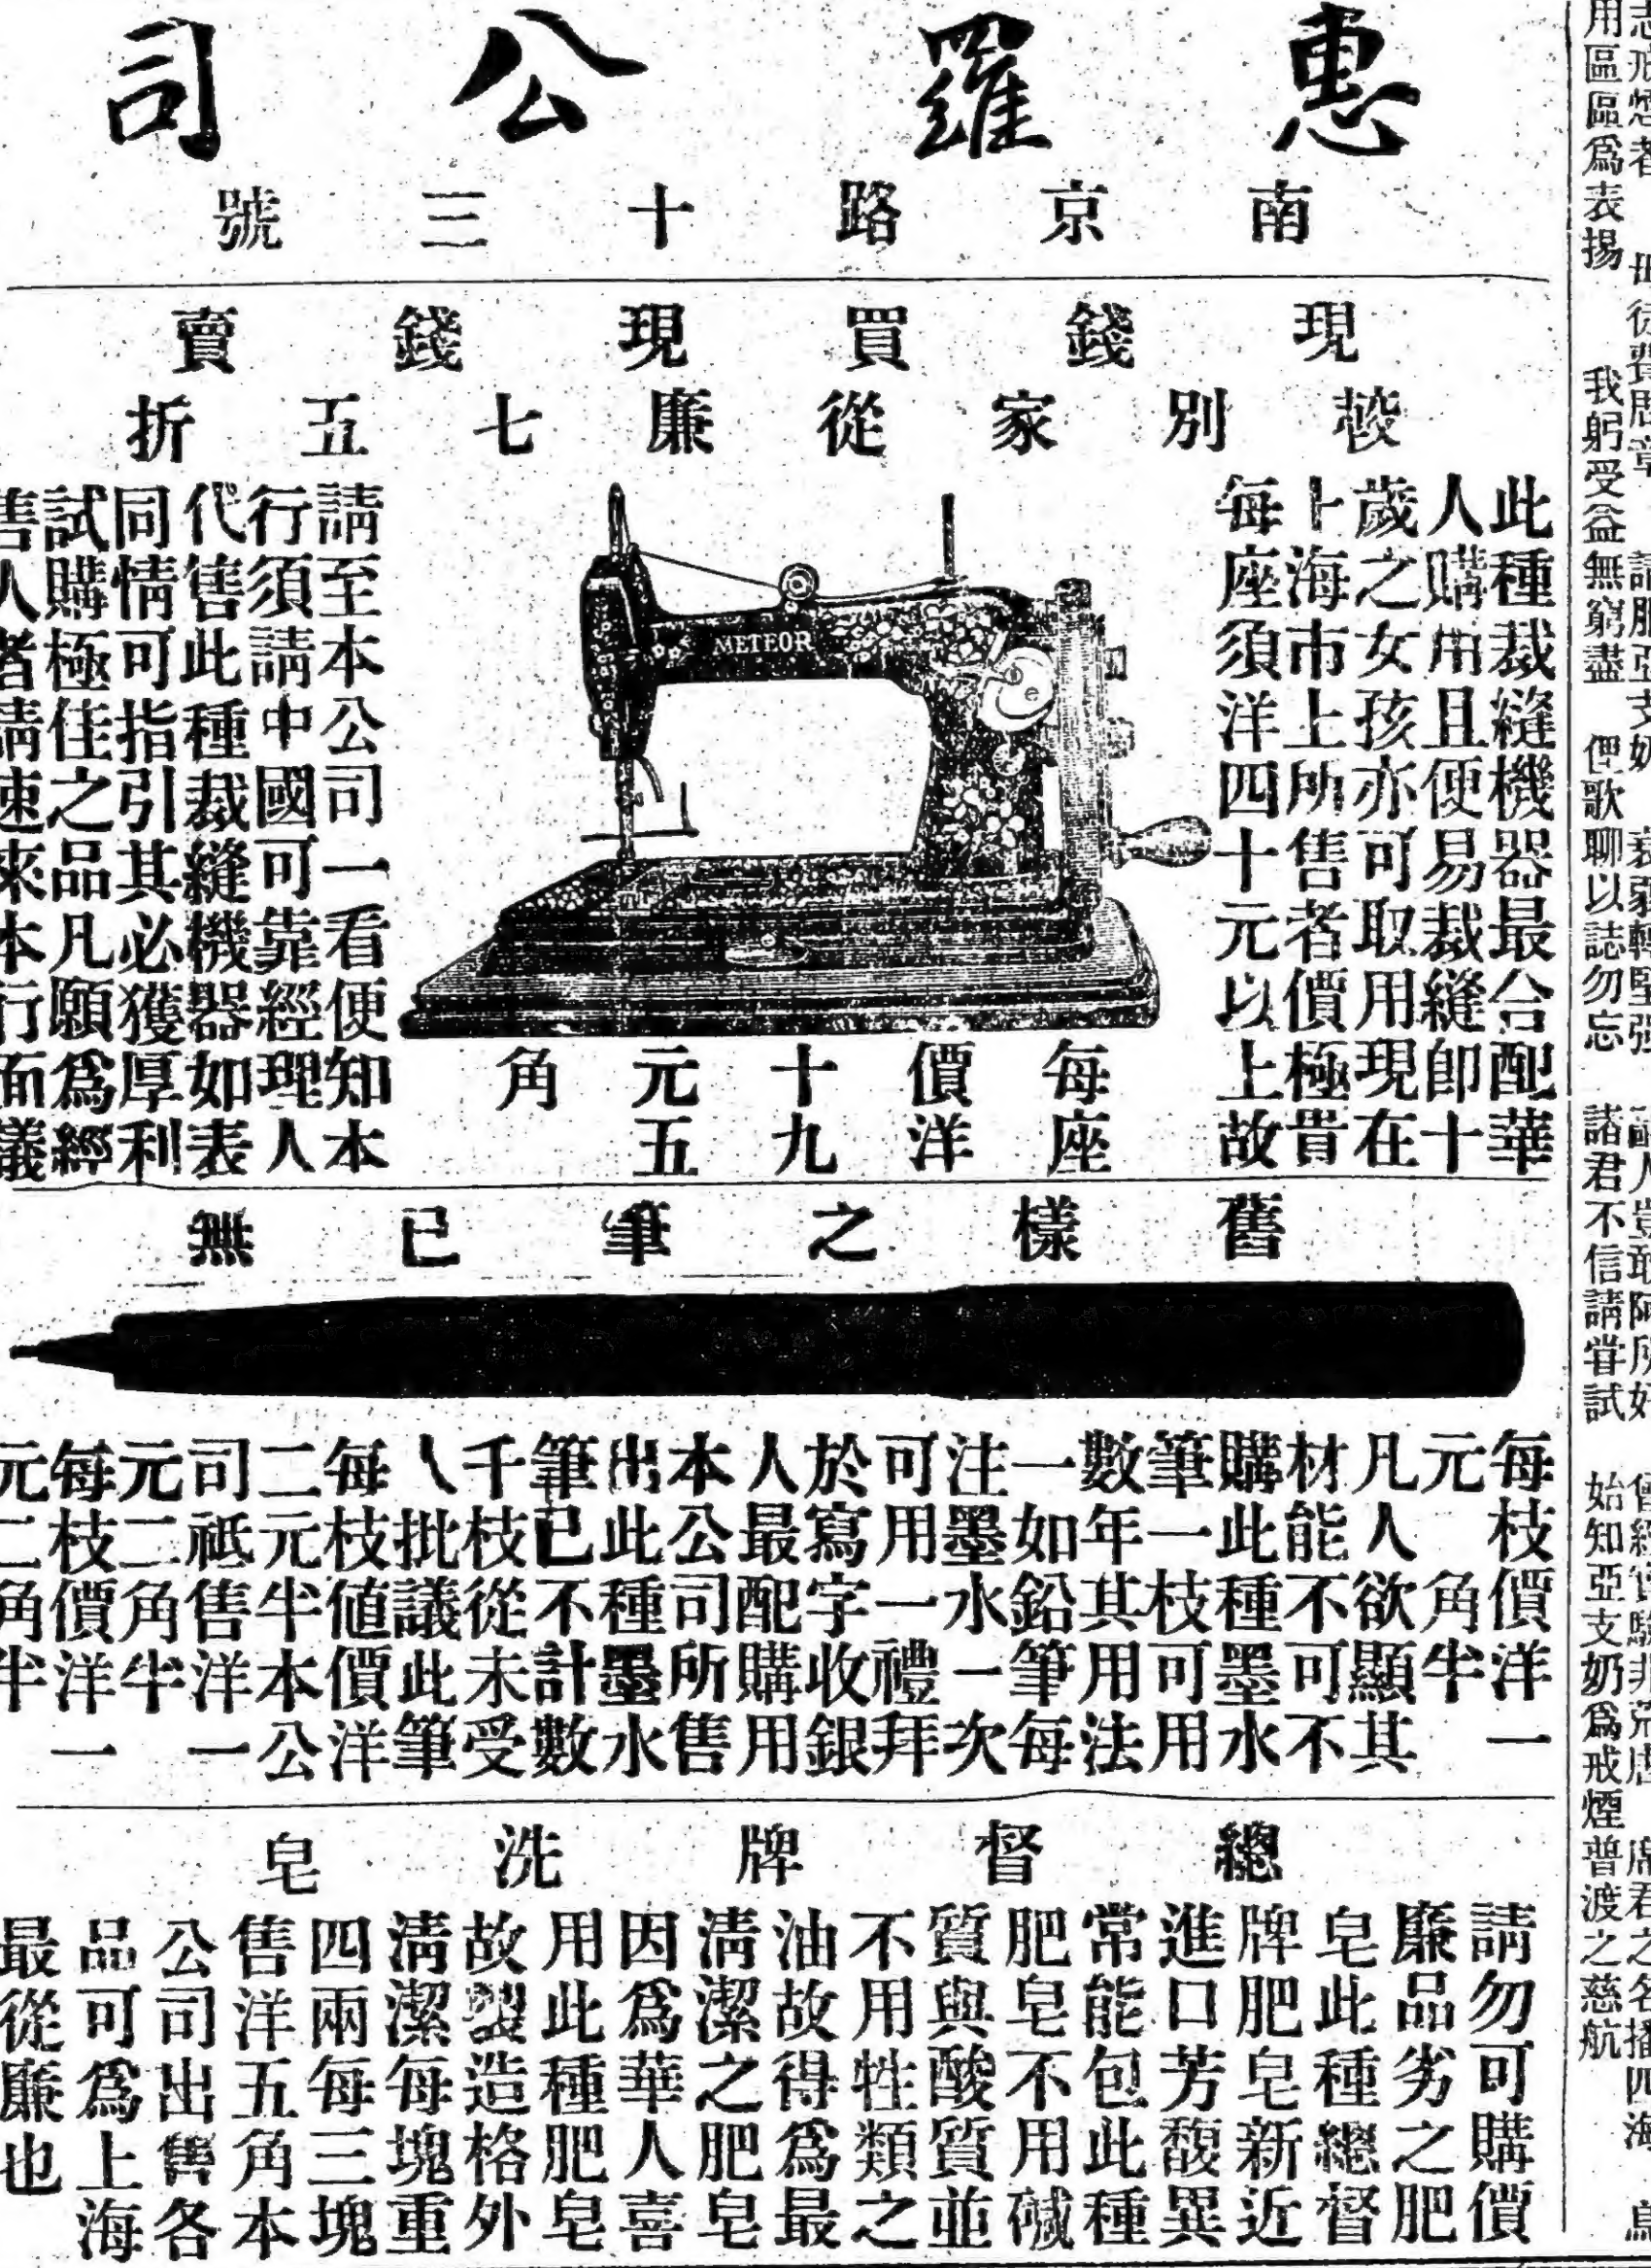 惠羅公司
南京路十三號
現錢買現錢賣
較別家從廉七五折
此種裁縫機器最合配華
人購用且便易裁縫卽十
歲之女孩亦可取用現在
上海市上所售者價極貴
每座須洋四十元以上故
METEOR
每座
價洋
十九
元五
角
請至本公司一看便知本
行須請中國可靠經理人
代售此種裁縫機器如表
同情可指引其必獲厚利
試購極佳之品凡願爲經
售人者請速來本行面議
舊樣之筆已無
每枝價洋一
元 角半
凡人欲顯其
材能不可不
購此種墨水
筆一枝可用
數年其用法
一如鉛筆每
注墨水一次
可用一禮拜
於寫字收銀
人最配購用
本公司所售
出此種墨水
筆已不計數
千枝從未受
人批議此筆
每枝値價洋
二元半本公
司祗售洋一
元二角半
每枝價洋一
元二角半
總督牌洗皂
請勿可購價
廉品劣之肥
皂此種總督
牌肥皂新近
進口芳馥異
常能包此種
肥皂不用碱
質與酸質並
不用牲類之
油故得爲最
清潔之肥皂
因爲華人喜
用此種肥皂
故製造格外
清潔每塊重
四兩每三塊
售洋五角本
公司出售各
品可爲上海
最從廉也
請服亞支奶 衰弱轉堅强 豈敢阿所好 席君之名播四海
用區區爲表揚 我躬受益無窮盡 俚歌聊以誌勿忘 諸君不信請嘗試 始知亞支奶爲戒煙普渡之慈航